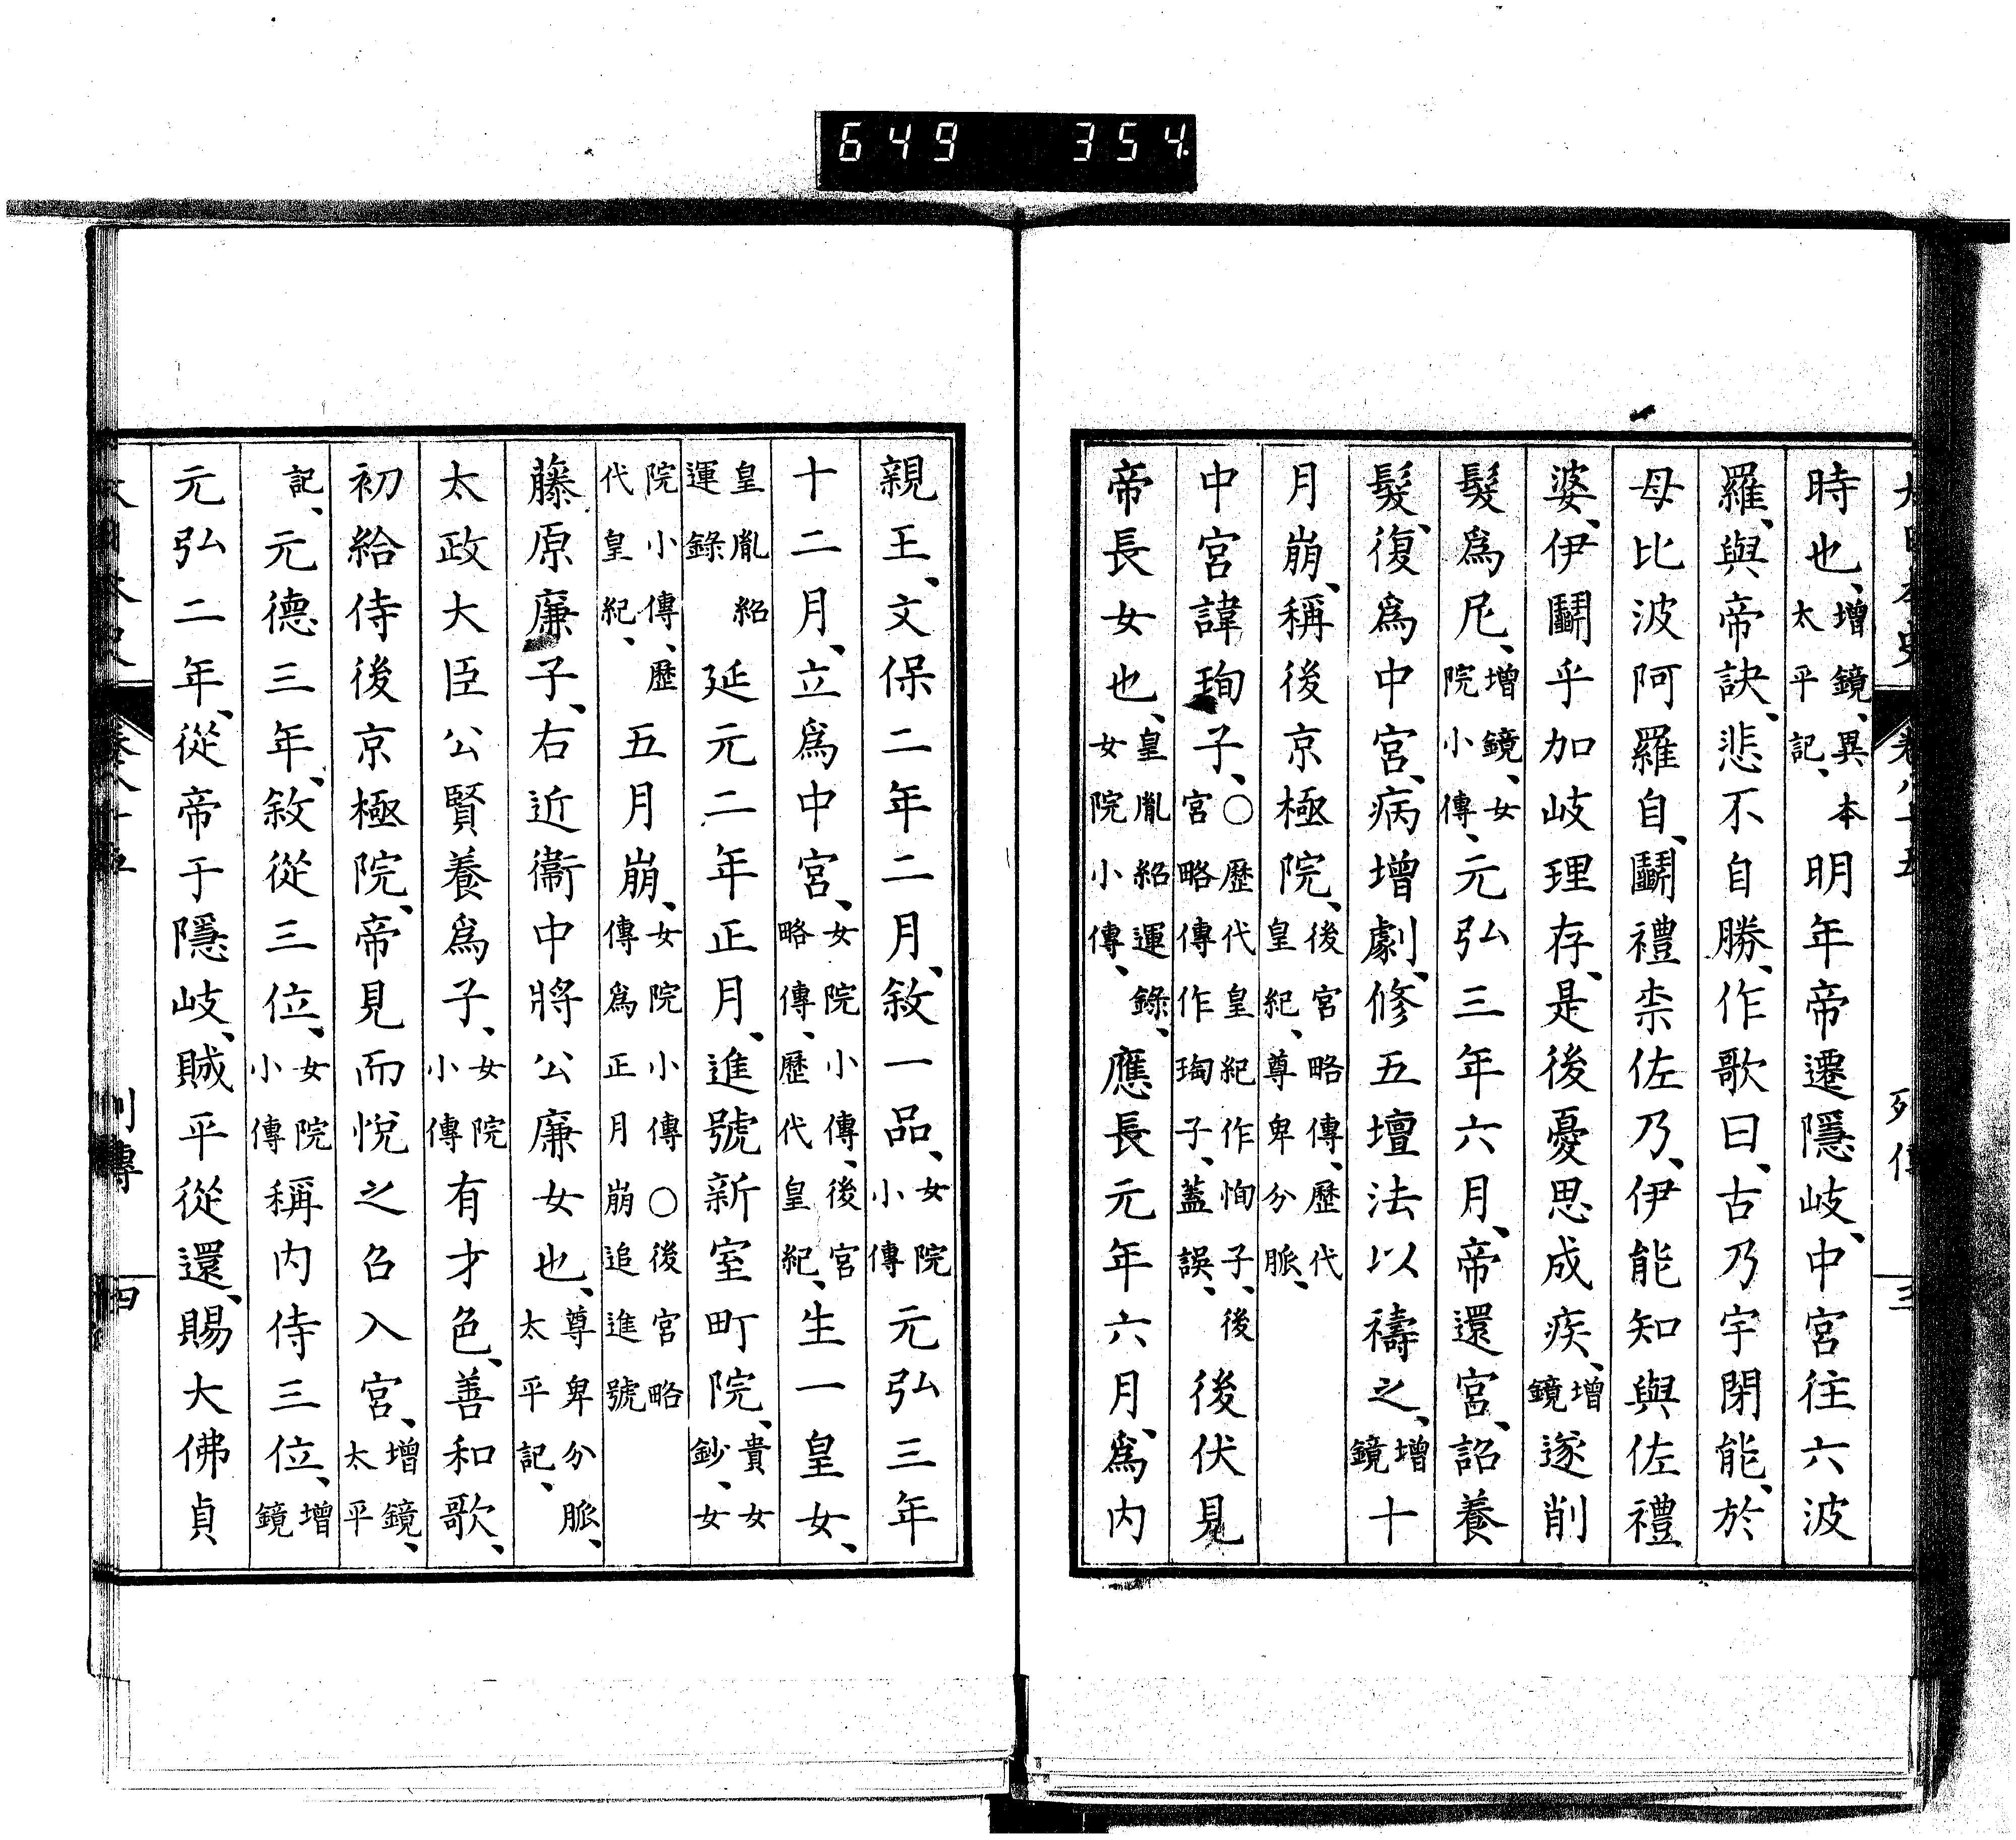 649 354.
時也、增鏡、異本太平記、明年帝遷隱岐、中宮往六波
羅、與帝訣、悲不自勝、作歌曰、古乃宇閉能、於
母比波阿羅自、鬪禮柰佐乃、伊能知與佐禮
婆、伊鬪乎加岐理存、是後憂思成疾、增鏡遂削
髮爲尼、增鏡、女院小傳、元弘三年六月、帝還宮、詔養
髮、復爲中宮、病增劇、修五壇法以禱之、增鏡十
月崩、稱後京極院、後宮略傳、歷代皇紀、尊卑分脈、
中宮諱珣子、○歷代皇紀作恂子、後宮略傳作珣子、蓋誤、後伏見
帝長女也、皇胤紹運錄、女院小傳、應長元年六月、爲內
親王、文保二年二月、敘一品、女院小傳元弘三年
十二月、立爲中宮、女院小傳、後宮略傳、歷代皇紀、生一皇女、
皇胤紹運錄延元二年正月、進號新室町院、貴女鈔、女
院小傳、歷代皇紀、五月崩、女院小傳○後宮略傳爲正月崩追進號
藤原廉子、右近衞中將公廉女也、尊卑分脈、太平記、
太政大臣公賢養爲子、女院小傳有才色、善和歌、
初給侍後京極院、帝見而悅之召入宮、增鏡、太平
記、元德三年、敘從三位、女院小傳稱內侍三位、增鏡
元弘二年、從帝于隱岐、賊平從還、賜大佛貞
列傳 四